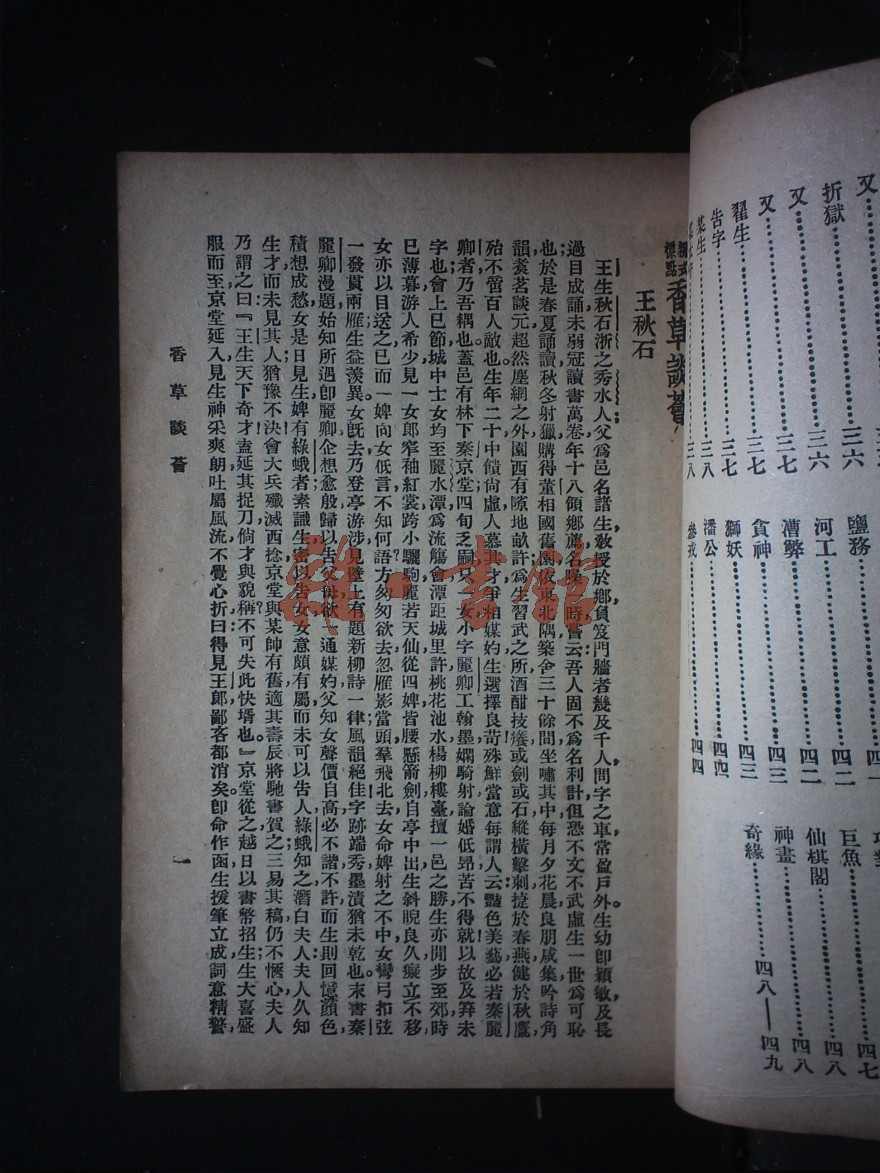 又………………三五
折獄………………三六
又………………三六
又………………三七
翟生………………三七
告字………………三八
某生………………三八
鹽務………………四一
河工………………四二
漕弊………………四二
貪神………………四三
獅妖………………四三
潘公………………四四
巨魚………………四七
仙棋閣………………四八
神畫………………四八
奇緣………………四八——四九
新式標點香草談薈
王秋石
王生秋石,浙之秀水人,父爲邑名諸生,敎授於鄉,負笈門牆者幾及千人,問字之車,常盈戶外。生幼卽穎敏,及長
過目成誦;未弱冠,讀書萬卷,年十八領鄉薦,名噪一時。嘗云:吾人固不爲名利計,但恐不文不武,虛生一世爲可恥
也。於是春夏誦讀,秋冬射獵,購得董相國舊園,於東北隅築舍三十餘間,坐嘯其中,每月夕花晨,良朋咸集,吟詩角
韻,煮茗談元,超然塵網之外。園西有隙地畝許,爲生習武之所,酒酣技癢,或劍或石,縱橫擊刺,捷於春燕,健於秋鷹,
殆不啻百人敵也。生年二十,中饋尙虛,人慕其才,爭相媒妁,生選擇良苛,殊鮮當意,每謂人云:豔色美藝,必若秦麗
卿者,乃吾耦也。蓋邑有林下秦京堂,四旬乏嗣,只一女,小字麗卿,工翰墨,嫻騎射,論婚低昂,苦不得就!以故及笄未
字也。會上巳節,城中士女,均至麗水潭爲流觴會,潭距城里許,桃花池水,楊柳樓臺,擅一邑之勝;生亦閒步至郊,時
已薄暮,游人希少,見一女郎,窄袖紅裳,跨小驪駒,麗若天仙,從四婢皆腰懸箭劍,自亭中出,生斜睨良久,癡立不移,
女亦以目送之,已而一婢向女低言,不知何語?方匆匆欲去,忽雁影當頭,羣飛北去,女命婢射之,不中,女彎弓扣弦,
一發貫兩雁,生益羨異。女旣去,乃登亭游涉,見壁上有題新柳詩一律,風韻絕佳;字跡端秀,墨漬猶未乾也。末書秦
麗卿漫題,始知所遇卽麗卿,企想愈殷,歸以告父母,欲一通媒妁,父知女聲價自高,必不諧,不許,而生則回憶顏色,
積想成愁。女是日見生,婢有綠蛾者素識生,密以告女,女意頗有屬,而未可以告人,綠蛾知之,潛白夫人,夫人久知
生才而未見其人,猶豫不決;會大兵殲滅西捻,京堂與某帥有舊,適其壽辰,將馳書賀之,三易其稿,仍不愜心,夫人
乃謂之曰:『王生天下奇才,盍延其捉刀,倘才與貌稱,不可失此快壻也。』京堂從之,越日以書幣招生,生大喜,盛
服而至,京堂延入,見生神采爽朗,吐屬風流,不覺心折曰:得見王郎,鄙吝都消矣。卽命作函,生援筆立成,詞意精警,
香草談薈
一